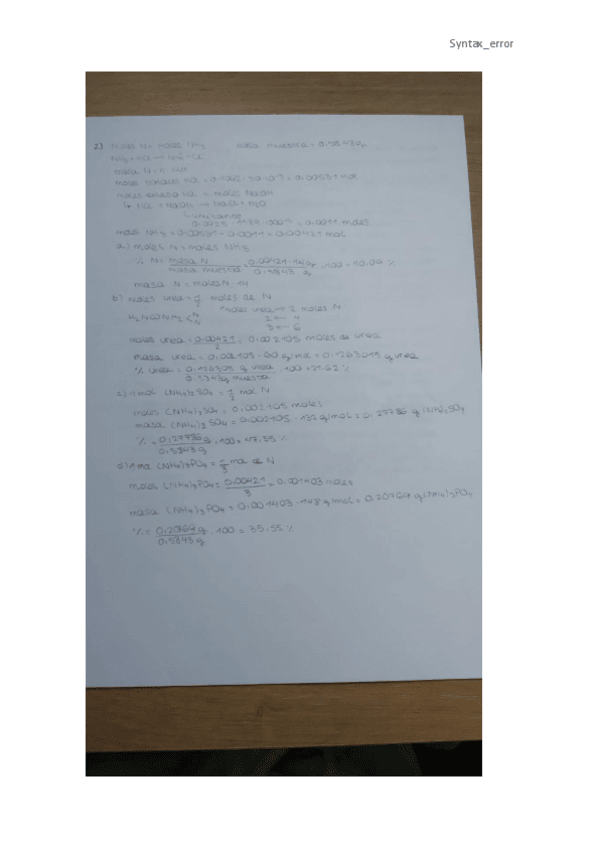 Syntax_error
2) moles N = moles NH3 masa muestra = 0.5843g
NH3 + HCl →
masa N =
moles totales HCl = = 0.00531 mol
moles exceso HCl = moles NaOH
↳ HCl + NaOH → NaCl + H2O
= 0.0011 moles
moles NH3 = 0.00531 - 0.0011 = 0.00421 mol
a) moles N = moles NH3
% N = masa N / masa muestra = 0.00421 · 14 g / 0.5843 g · 100 = 10.09 %
masa N = moles N · 14
b) moles urea = 1/2 moles de N
H2NCONH2 < N N 1 moles urea → 2 moles N
2 ← 4
3 ← 6
moles urea = 0.00421 / 2 = 0.002105 moles de urea
masa urea = 0.002105 · 60 g/mol = 0.1263 g urea
% urea = g urea / 0.5843 g muestra · 100 = 21.62 %
c) 1 mol (NH4)2SO4 = 1/2 mol N
moles (NH4)2SO4 = 0.002105 moles
masa (NH4)2SO4 = 0.002105 · 132 g/mol = 0.27786 g (NH4)2SO4
% = 0.27786 g / 0.5843 g · 100 = 47.55 %
d) 1 mol (NH4)3PO4 = 1/3 mol de N
moles (NH4)3PO4 = 0.00421 / 3 = 0.001403 moles
masa (NH4)3PO4 = 0.001403 · 148 g/mol = 0.20769 g (NH4)3PO4
% = 0.20769 g / 0.5843 g · 100 = 35.55 %